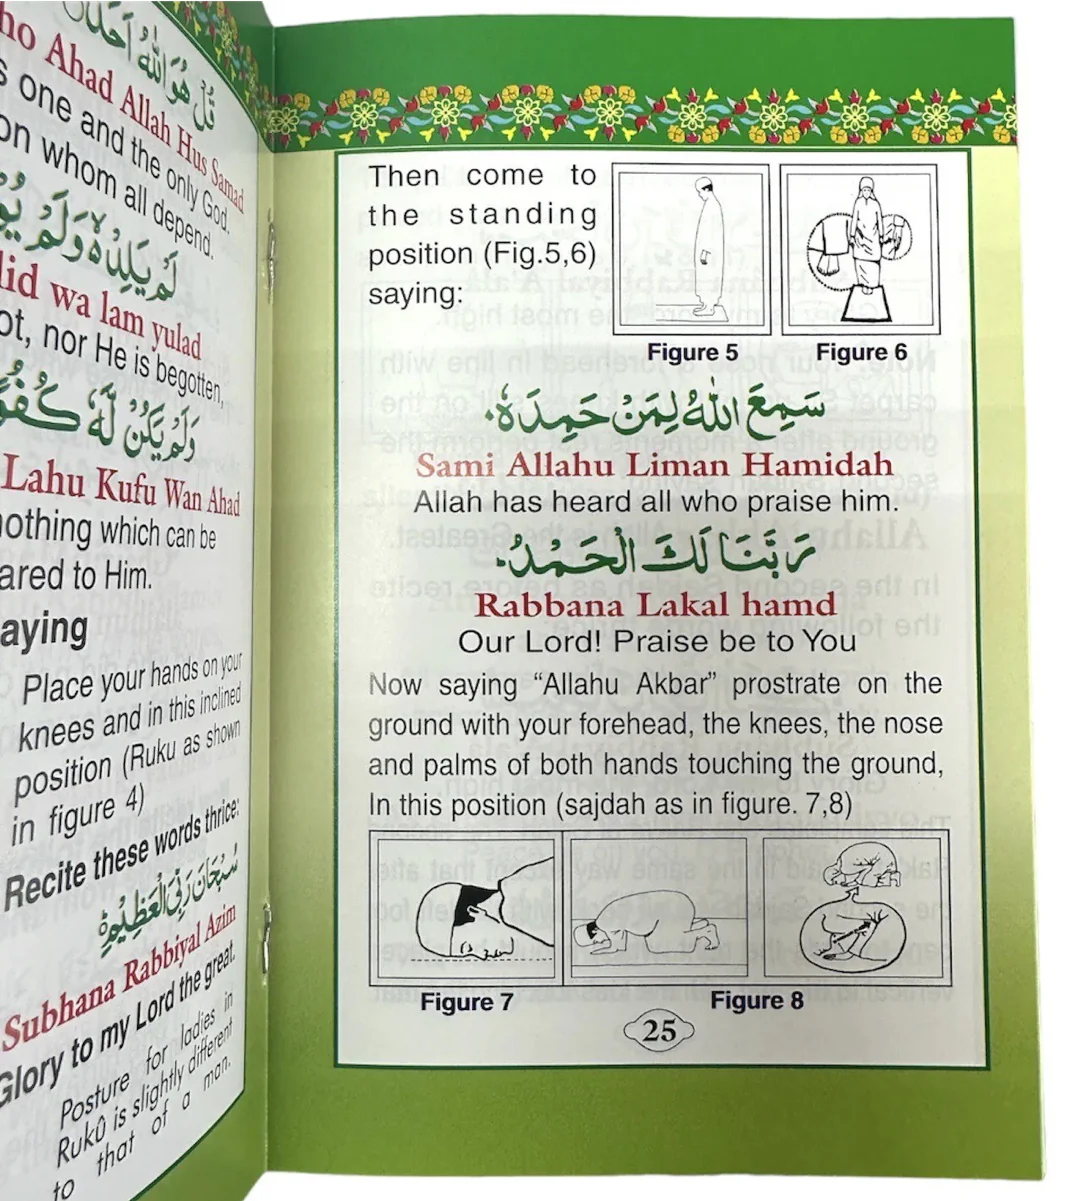 قُلْ هُوَ اللّٰهُ اَحَدٌ
Ahad Allah Hus Samad
one and the only God.
on whom all depend.
لَمْ يَلِدْ ۙ وَلَمْ
wa lam yulad
nor He is begotten,
وَلَمْ يَكُنْ لَّهٗ
Lahu Kufu Wan Ahad
which can be
to Him.
Place your hands on your
knees and in this inclined
position (Ruku as shown
in figure 4)
Recite these words thrice:
سُبْحَانَ رَبِّيَ الْعَظِيْمِ
Subhana Rabbiyal Azim
Glory to my Lord the great.
Posture for ladies in
Rukû is slightly different
to that of a man.
Then come to
the standing
position (Fig.5,6)
saying:
Figure 5 Figure 6
سَمِعَ اللّٰهُ لِمَنْ حَمِدَهٗ
Sami Allahu Liman Hamidah
Allah has heard all who praise him.
رَبَّنَا لَكَ الْحَمْدُ
Rabbana Lakal hamd
Our Lord! Praise be to You
Now saying “Allahu Akbar” prostrate on the
ground with your forehead, the knees, the nose
and palms of both hands touching the ground,
In this position (sajdah as in figure. 7,8)
Figure 7 Figure 8
25